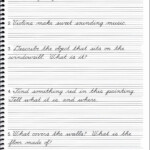 2. Violins make sweet sounding music.
3. Describe the object that sits on the
windowsill. What is it?
4. Find something red in this painting.
Tell what it is and where.
5. What covers the walls? What is the
floor made of?